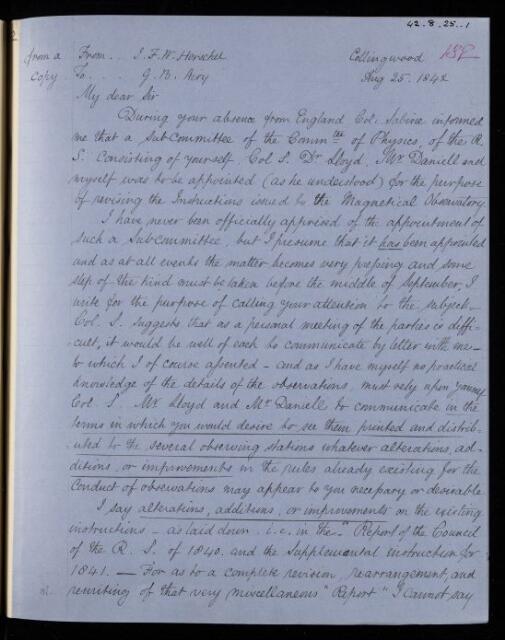 42.8.25.1
from a From . . J. F. W. Herschel Collingwood
Copy To . . . G. B. Airy Aug 25. 1842
My dear Sir
During your absence from England Col. Sabine informed
me that a Sub-committee of the Comm^ttee of Physics, of the R.
S. consisting of yourself Col S. Dr Lloyd, Mr Daniell and
myself was to be appointed (as he understood) for the purpose
of revising the Instructions issued to the Magnetical Observatory.
I have never been officially apprised of the appointment of
such a Sub-committee, but I presume that it has been appointed
and as at all events the matter becomes very pressing and some
step of the kind must be taken before the middle of September, I
write for the purpose of calling your attention to the subject. –
Col. S. suggests that as a personal meeting of the parties is diffi-
-cult, it would be well of each to communicate by letter with me –
to which I of course assented – and as I have myself no practical
knowledge of the details of the observations, must rely upon
Col. S. Mr Lloyd and Mr Daniell to communicate in the
terms in which you would desire to see them printed and distrib-
-uted to the several observing stations whatever alterations, ad-
ditions, or improvements in the rules already existing for the
conduct of observations may appear to you necessary or desirable
I say alterations, additions, or improvements on the existing
instructions – as laid down i.e. in the "Report of the Council
of the R. S. of 1840. and the Supplemental instruction for
1841. — For as to a complete revision, rearrangement, and
rewriting of that very miscellaneous "Report" I cannot say